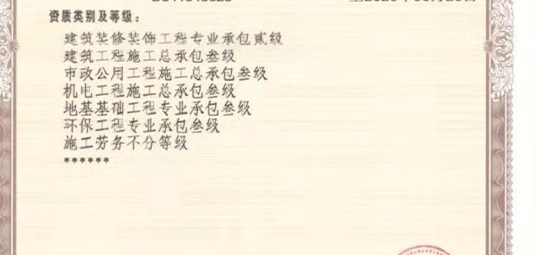 资质类别及等级:
建筑装修装饰工程专业承包贰级
建筑工程施工总承包叁级
市政公用工程施工总承包叁级
机电工程施工总承包叁级
地基基础工程专业承包叁级
环保工程专业承包叁级
施工劳务不分等级
******